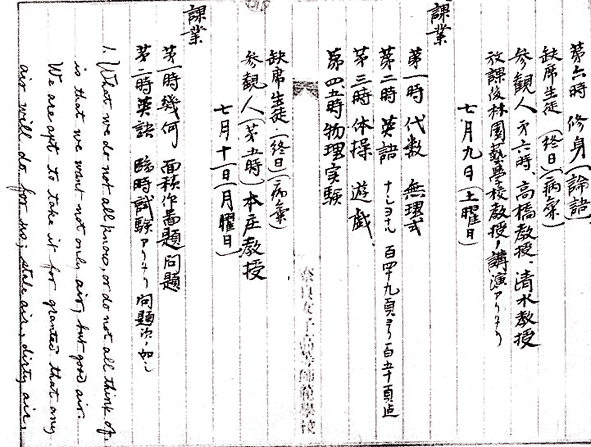 第六時 修身(論語)
缺席生徒(終日)(病氣)
参観人 第六時、高橋教授 清水教授
放課後林園藝學校教授ノ講演アリタリ
七月九日(土曜日)
課業
第一時 代数 無理式
第二時 英語 ナショナル 百四十九頁ヨリ百五十頁迄
第三時 体操 遊戯
第四五時 物理実験
奈良女子高等師範學校
缺席生徒(終日)(病氣)
参観人(第五時)本庄教授
七月十一日(月曜日)
課業
第一時 幾何 面積作啚題問題
第二時 英語 臨時試験アリタリ 問題次ノ如シ
1. What we do not all know, or do not all think of,
is that we want not only air, but good air.
We are apt to take it for granted that any
air will do for us; stale air, dirty air,